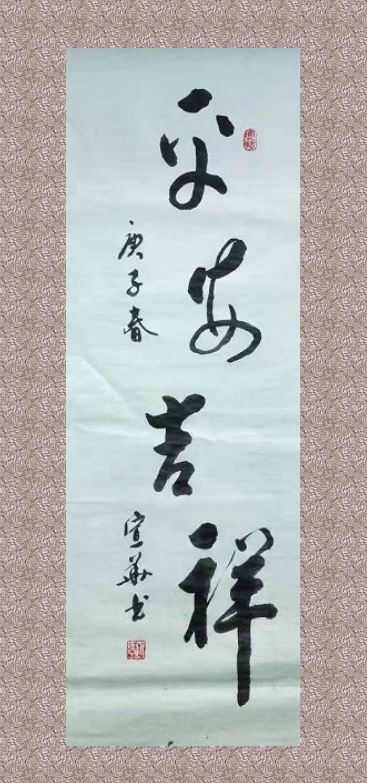 平安吉祥
庚子春
宣華书